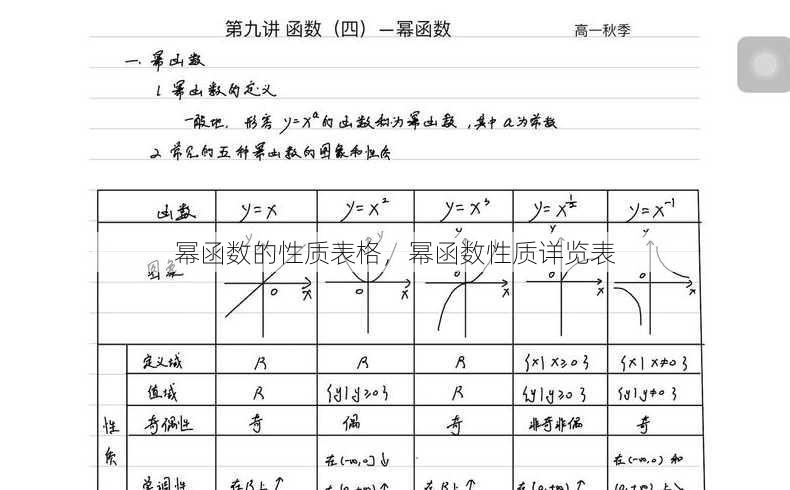 第九讲 函数（四）—幂函数 高一秋季
一. 幂函数
1. 幂函数的定义
一般地，形容 y=x^a 的函数称为幂函数，其中 a 为常数
2. 常见的五种幂函数的图象和性质
函数 y=x y=x² y=x³ y=x^½ y=x⁻¹
幂函数的性质表格，幂函数性质详览表
图象
y y y y y
o x o x o x o x o x
定义域 R R R {x|x≥0} {x|x≠0}
值域 R {y|y≥0} R {y|y≥0} {y|y≠0}
性质
奇偶性 奇 偶 奇 非奇非偶 奇
在(-∞,0]↓ 在(-∞,0) 和
单调性 在R上↑ 在[0,+∞)↑ 在R上↑ 在[0,+∞)↑